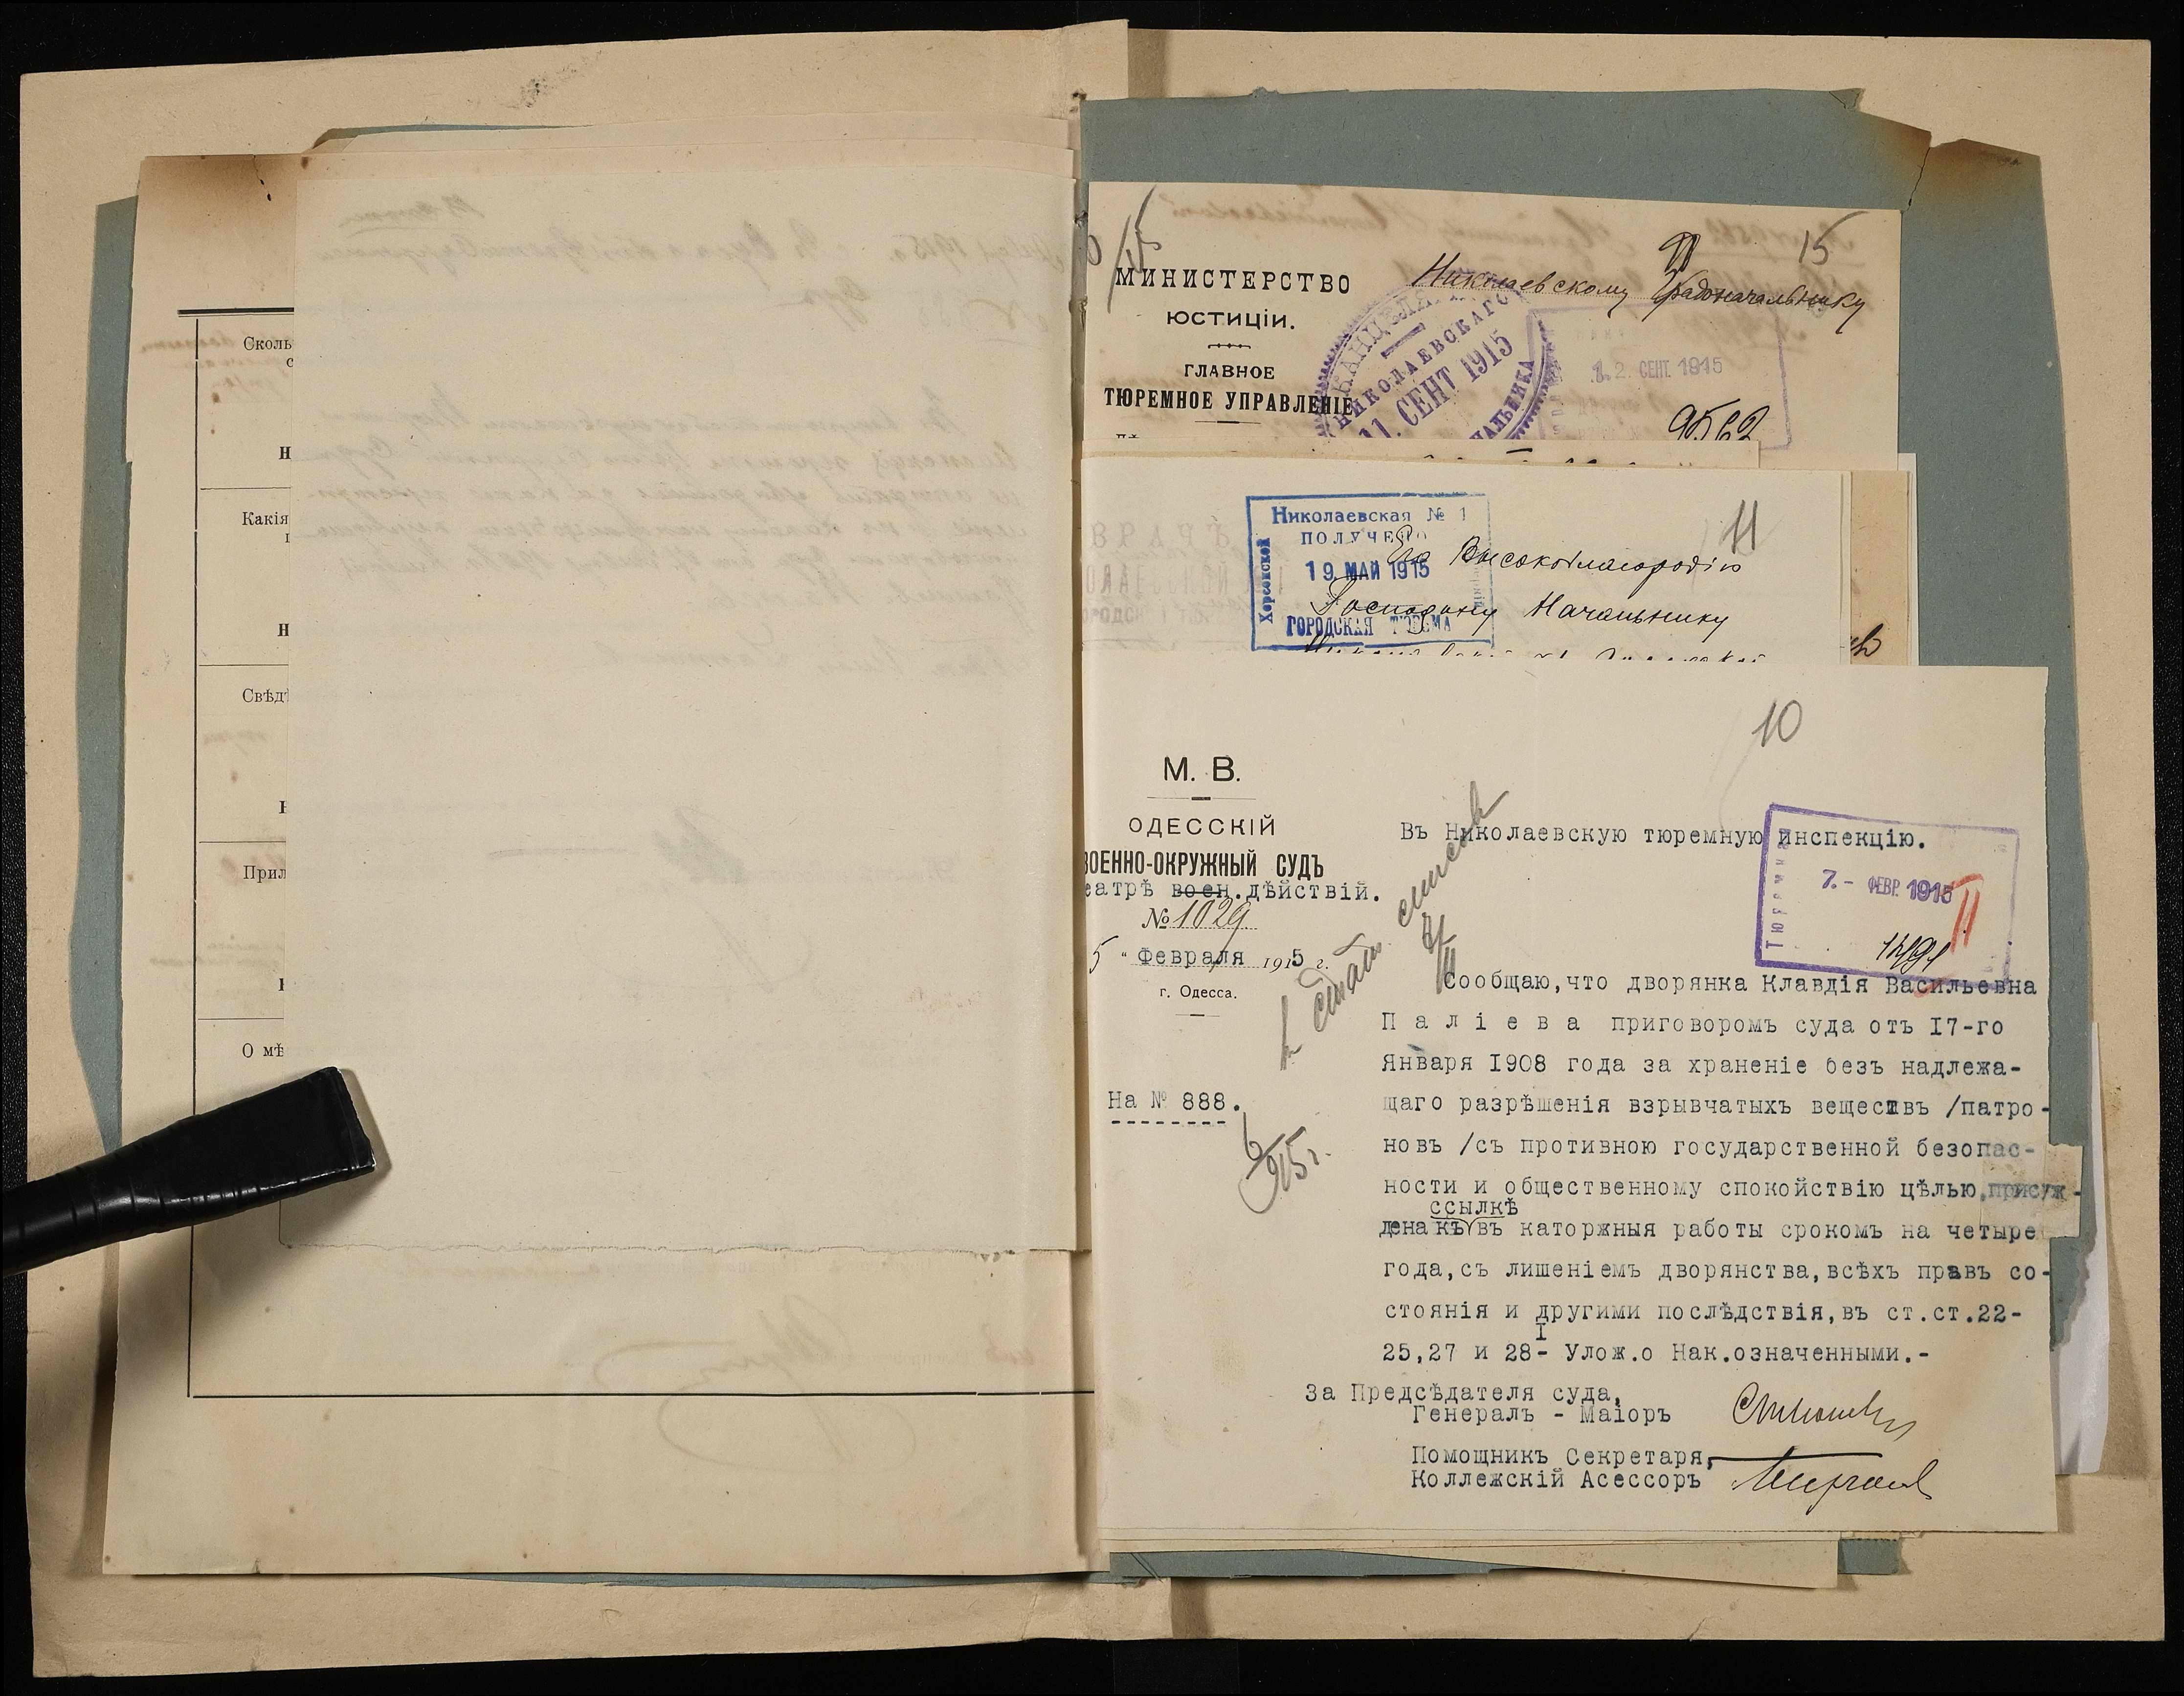 Сколь
с
Н
Какія
Н
Свѣд
Прил
О мѣ
15
МИНИСТЕРСТВО
ЮСТИЦІИ.
ГЛАВНОЕ
ТЮРЕМНОЕ УПРАВЛЕНІЕ
Николаевскому Градоначальнику
КАНЦЕЛЯ
НИКОЛАЕВСКАГО
11. СЕНТ 1915
НАЧАЛЬНИКА
12 СЕНТ. 1915
9562
11
Николаевская № 1
ПОЛУЧЕНО
19 МАЙ 1915
Херсонской
ГОРОДСКАЯ ТЮРЬМА
Его Высокоблагородію
Господину Начальнику
10
М. В.
ОДЕССКІЙ
ВОЕННО-ОКРУЖНЫЙ СУДЪ
еатрѣ воен.дѣйствій.
№ 1029
5 " Февраля 1915 г.
г. Одесса.
На № 888.
Въ Николаевскую тюремную инспекцію.
7.- ФЕВР. 1915
II
Сообщаю,что дворянка Клавдія Васильевна
П а л і е в а приговоромъ суда отъ I7-го
Января I908 года за храненіе безъ надлежа-
щаго разрѣшенія взрывчатыхъ веществъ /патро-
новъ /съ противною государственной безопас-
ности и общественному спокойствію цѣлью,присуж-
ссылкѣ
дена къ въ каторжныя работы срокомъ на четыре
года,съ лишеніемъ дворянства,всѣхъ правъ со-
стоянія и другими послѣдствія,въ ст.ст.22-
I
25,27 и 28- Улож.о Нак.означенными.-
За Предсѣдателя суда,
Генералъ - Маіоръ
Помощникъ Секретаря,
Коллежскій Асессоръ